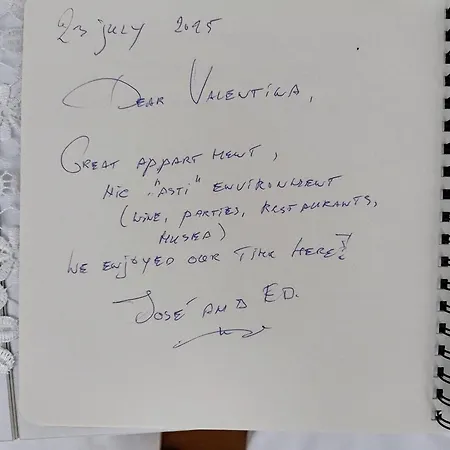 23 july 2015
DEAR VALENTINA,
GREAT APPARTMENT,
NIC "ASTI" ENVIRONMENT
(WINE, PARTIES, RESTAURANTS,
MUSEA)
WE ENJOYED OUR TIME HERE!
JOSÉ AND ED.